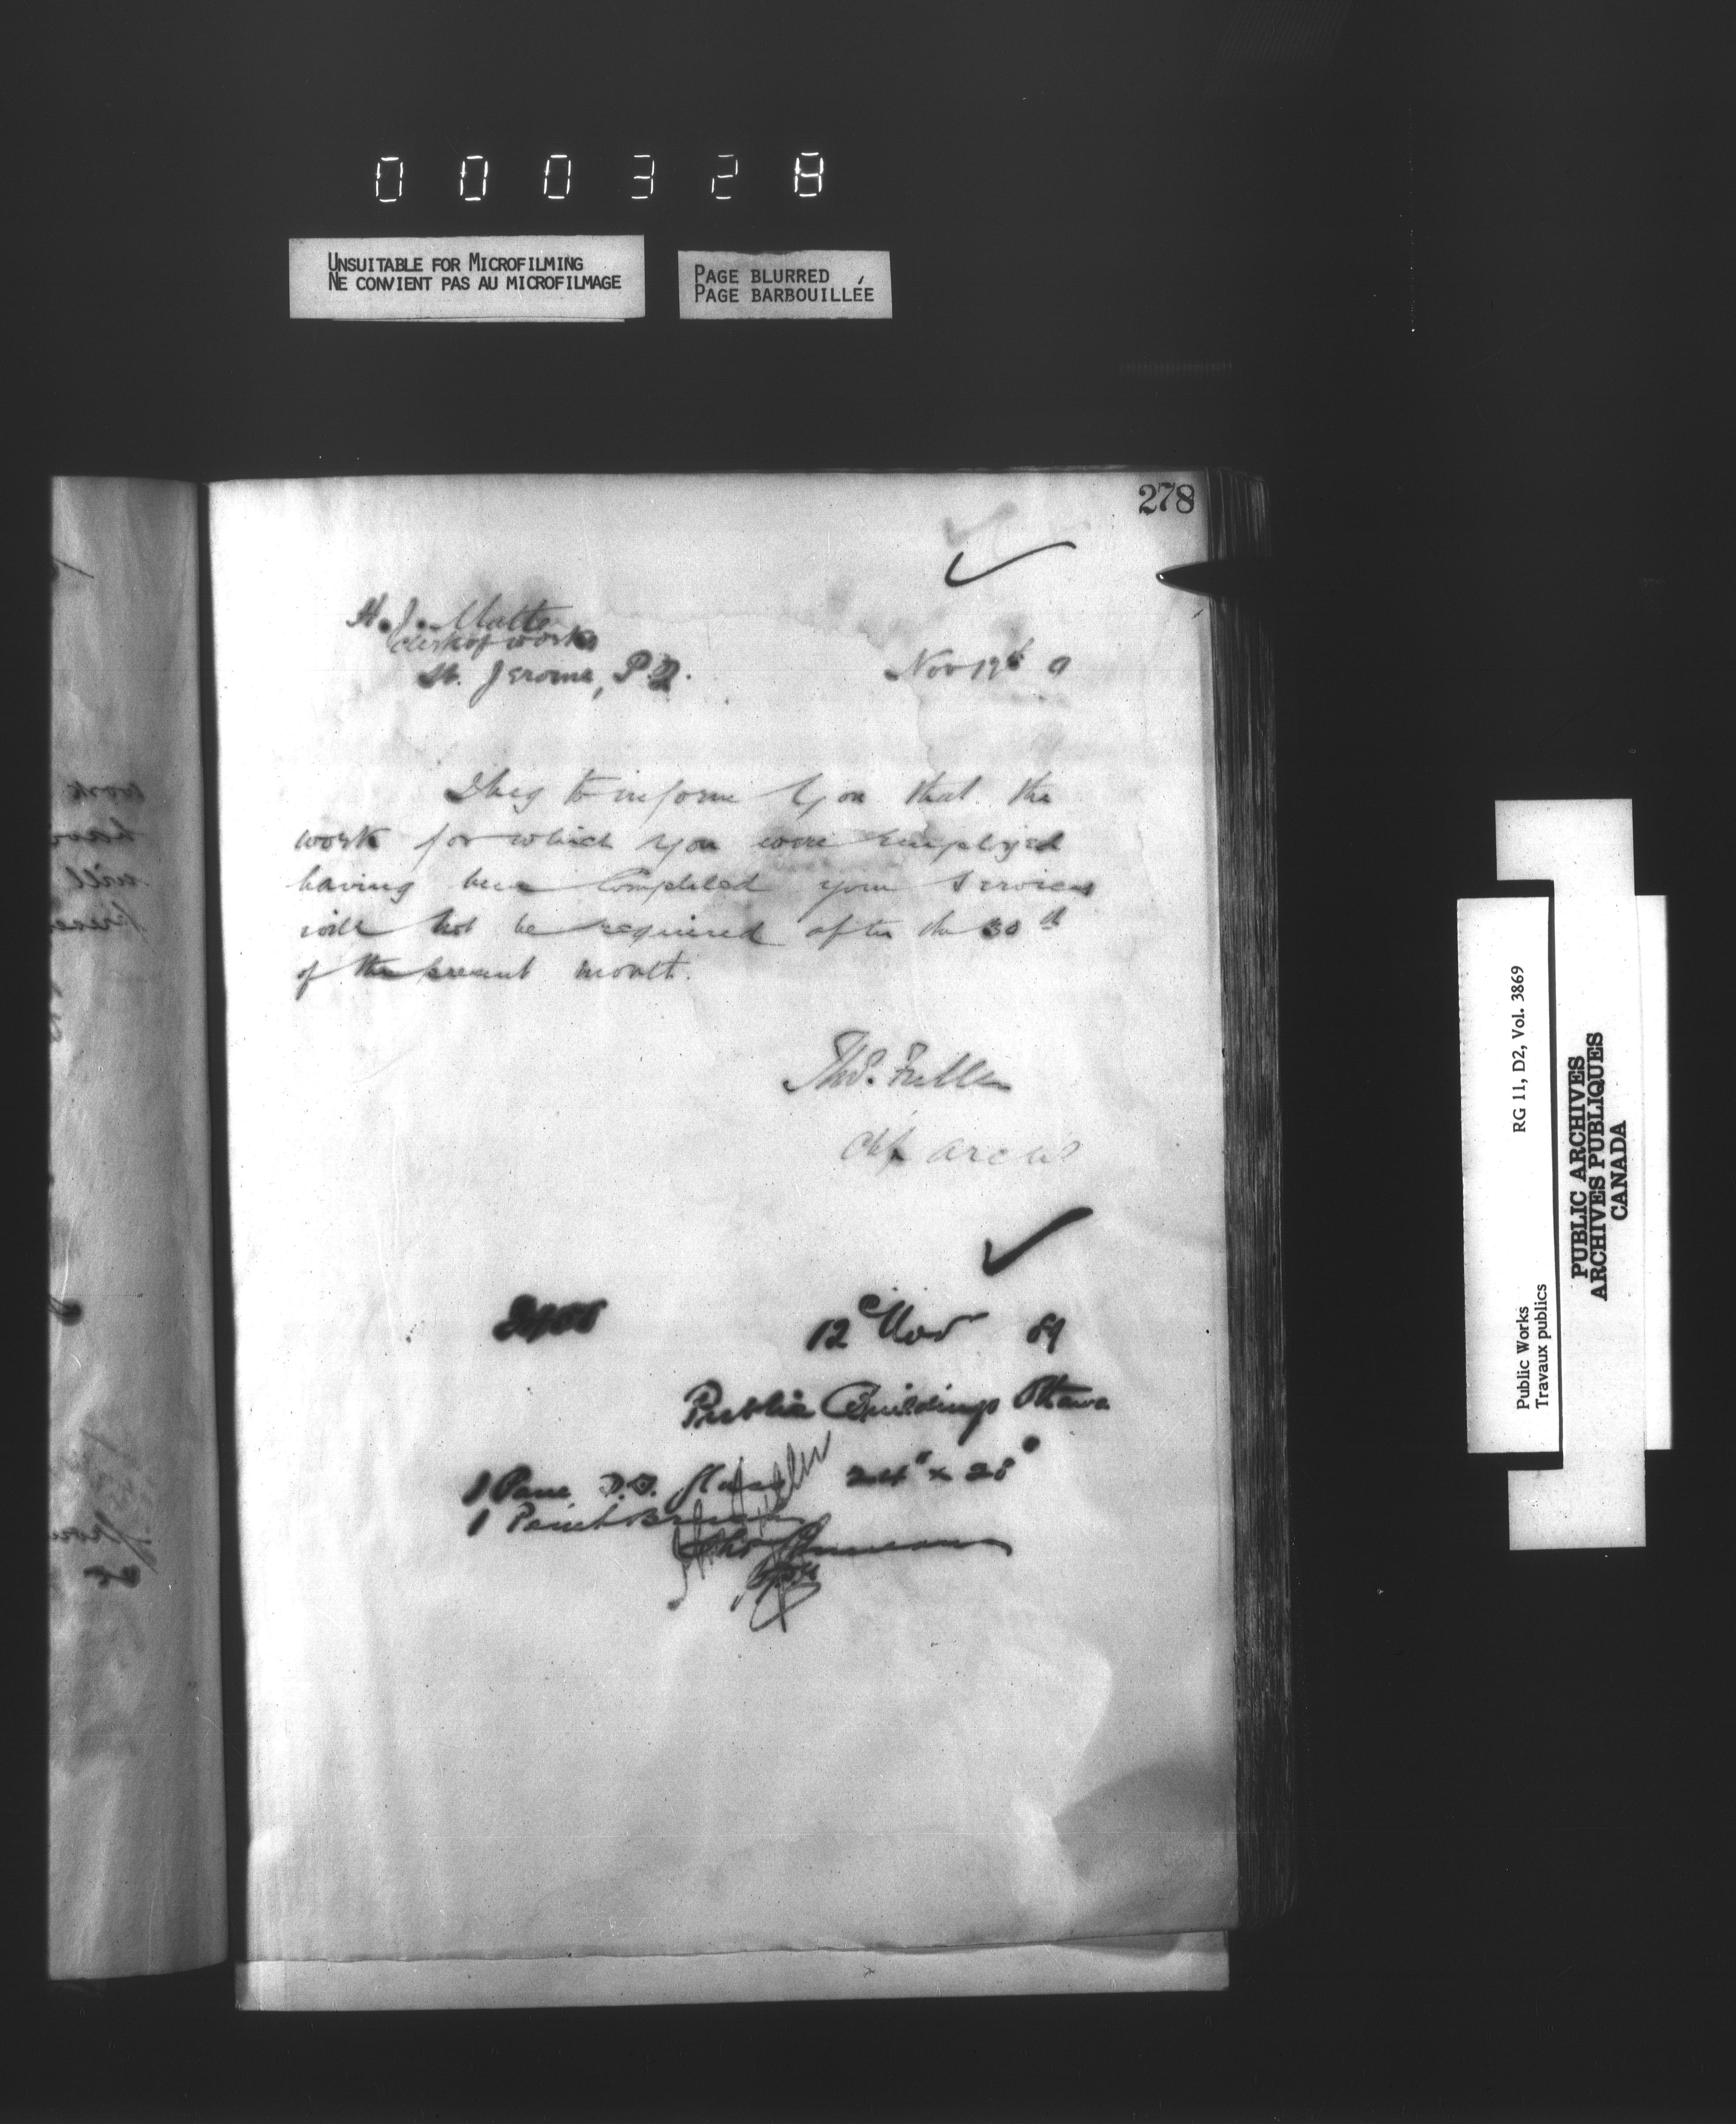 000328
UNSUITABLE FOR MICROFILMING
NE CONVIENT PAS AU MICROFILMAGE
PAGE BLURRED
PAGE BARBOUILLÉE
278
H. J. Matte
Clerk of works
St. Jerome, P.Q.
Nov 12th
I beg to inform you that the
work for which you were employed
having been completed your services
will not be required after the 30th
of the present month.
Thos. Fuller
Chf Archt
12 Nov 89
Public Buildings Ottawa
1 Pane D.D. Glass 24" x 28"
1 Paint Brush
Public Works
Travaux publics
RG 11, D2, Vol. 3869
PUBLIC ARCHIVES
ARCHIVES PUBLIQUES
CANADA